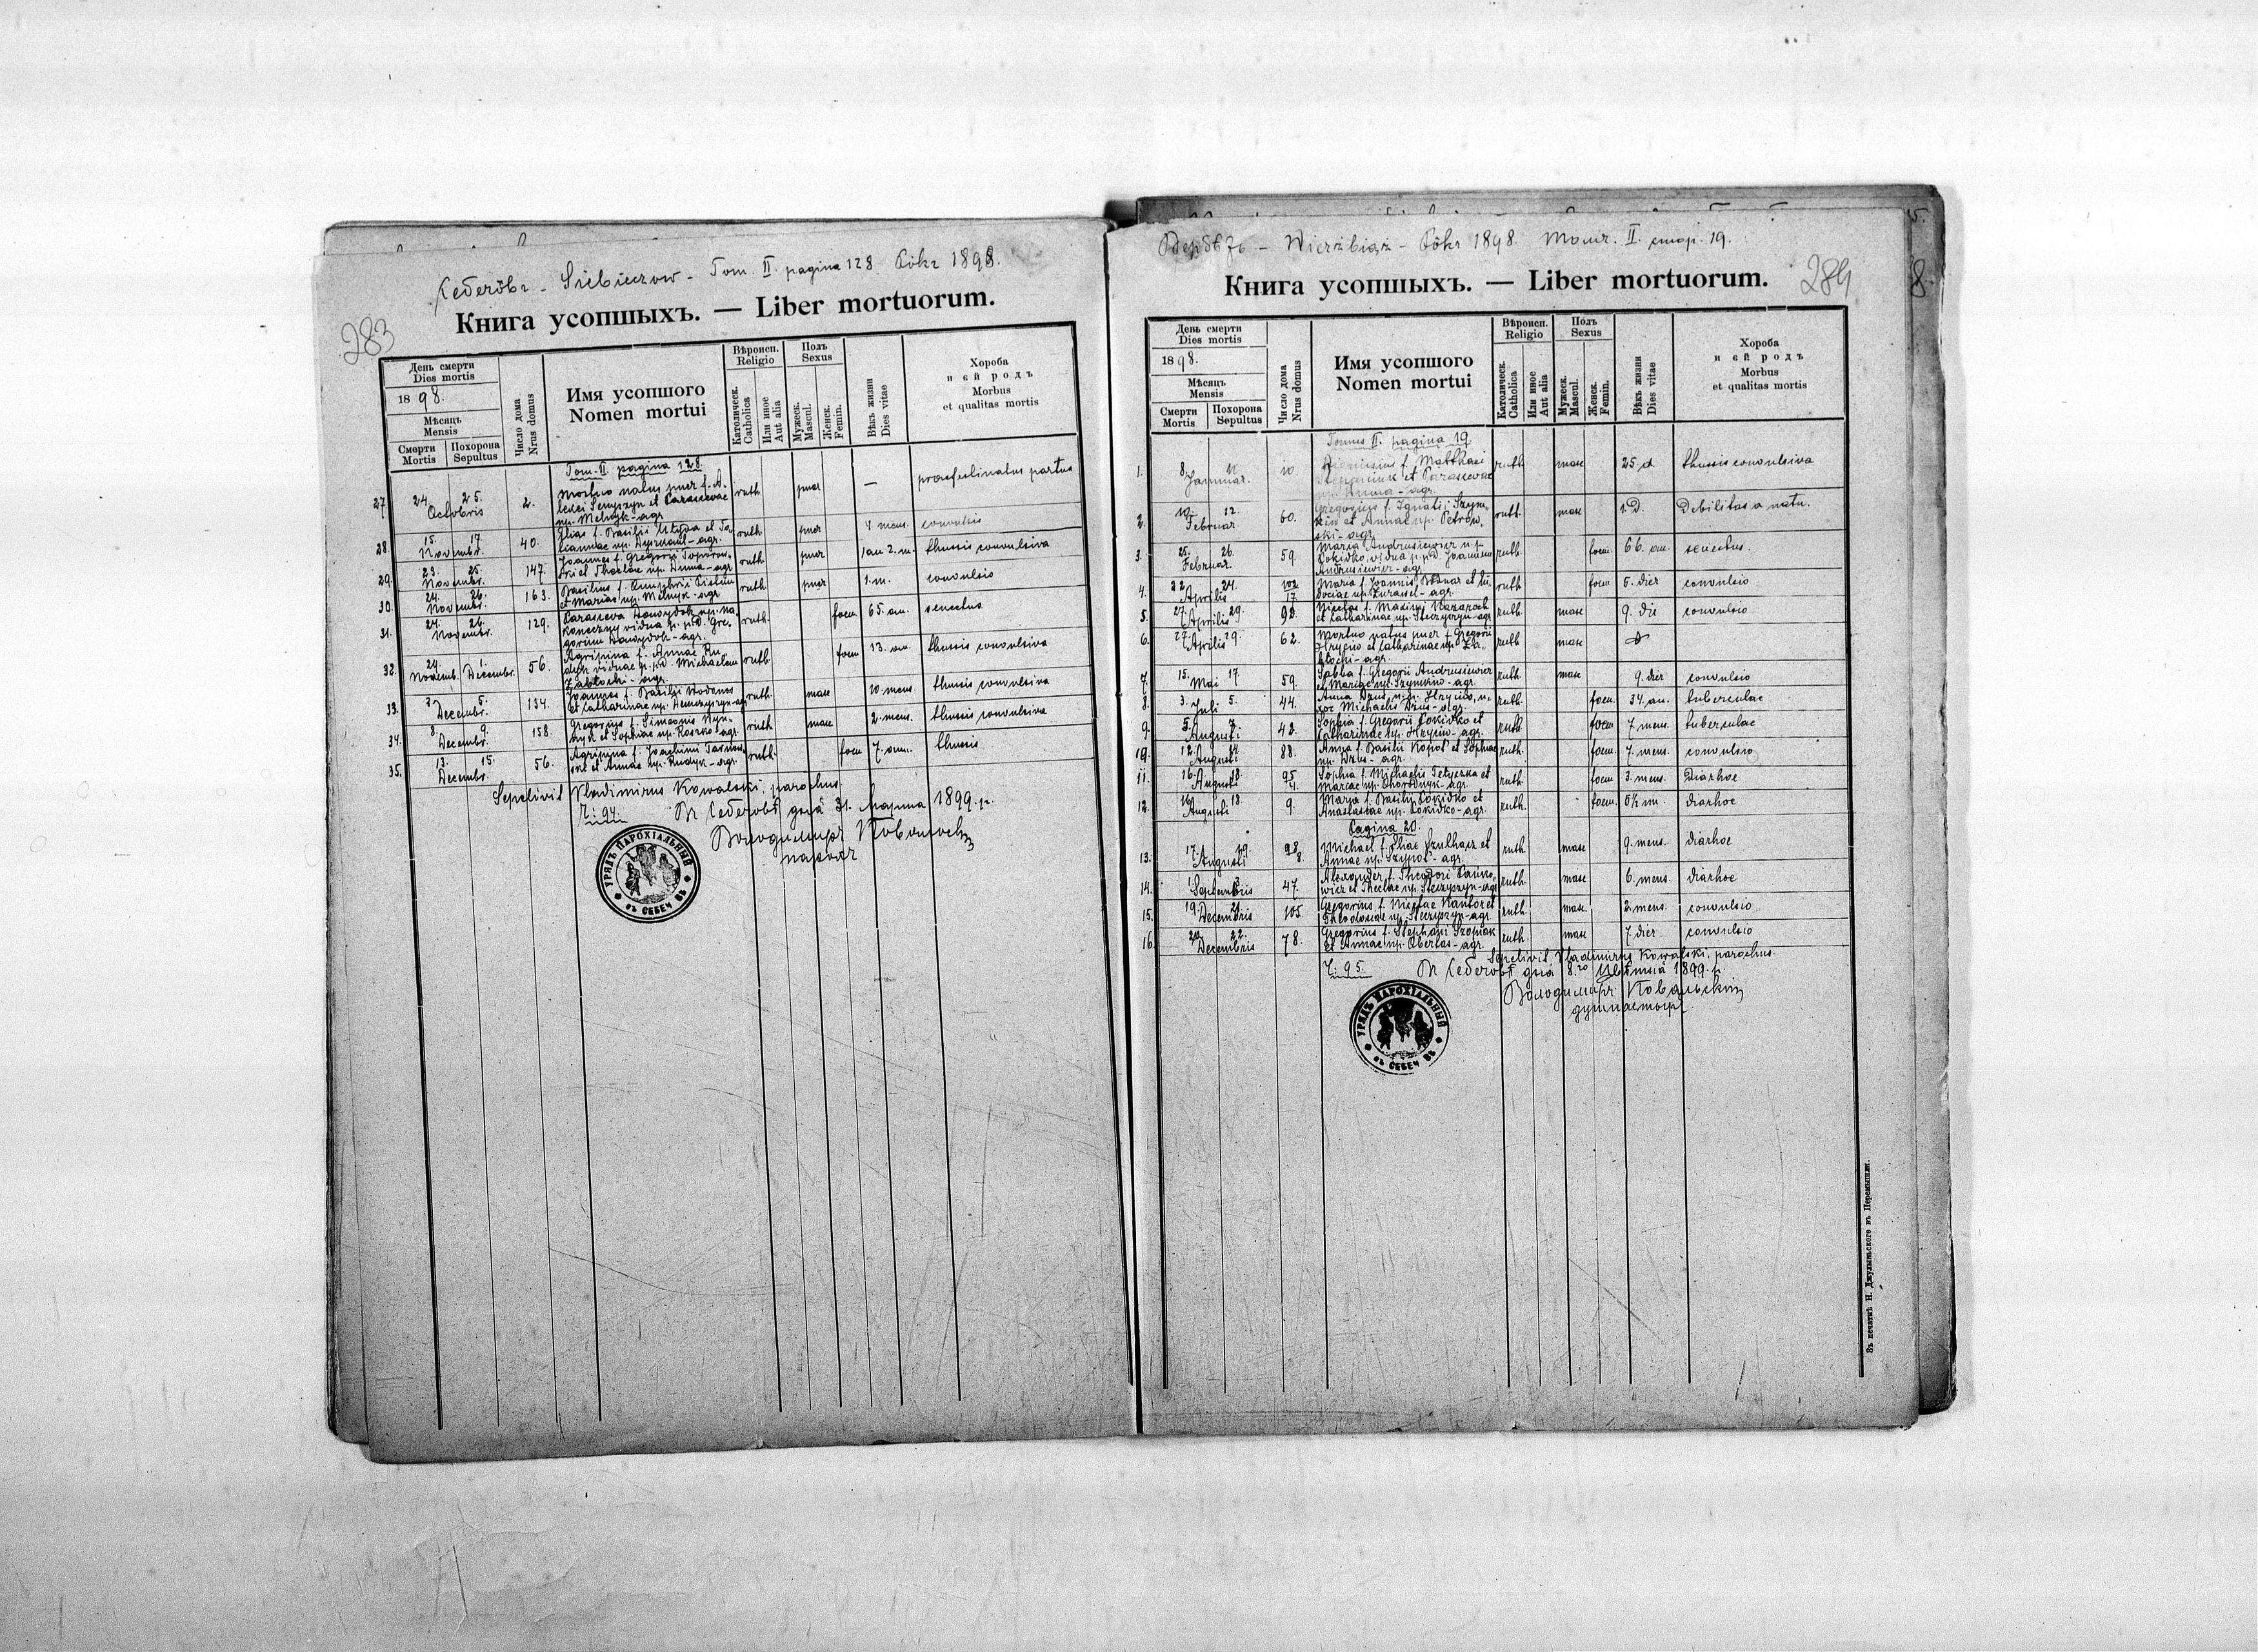 Себечôвъ - Siebieczow - Tom. II. pagina 128. Рôкъ 1898.
283
Книга усопшыхъ. — Liber mortuorum.
День смерти
Dies mortis
1898.
Мѣсяць
Mensis
Смерти
Mortis
Похорона
Sepultus
Число дома
Nrus domus
Имя усопшого
Nomen mortui
Вѣроисп.
Religio
Католическ.
Catholica
Или иное
Aut alia
Полъ
Sexus
Мужеск.
Mascul.
Женск.
Femin.
Вѣкъ жизни
Dies vitae
Хороба
и ей родъ
Morbus
et qualitas mortis
Tom. II. pagina 128.
27 24. 25. Octobris 2. Mortuo natus puer f. A-
lexei Senyszyn et Parascevae
np. Melnyk - agr. ruth. puer —
28. 15. 17. Novembr. 40. Elias f. Basilii et Ta-
tiannae np. - agr. ruth. puer 4 mens. convulsis
29. 23. 25. Novembr. 147. Joannes f. Gregorii Toporow-
ski et Theclae np. Duma - agr. ruth. puer 1 an 2. m. thussis convulsiva
30. 24. 26. Novembr. 163. Basilius f. Onuphrii
et Mariae np. Melnyk - agr. ruth. puer 1. m. convulsio
31. 24. 26. Novembr. 129. Parasceva Dawydok np. Na-
koneczny vidua p. p. D. Gre-
gorium Dawydok - agr. ruth. foem 65. an. senectus
32. 29. Novemb. 1. Decembr. 56. Agripina f. Annae Ru-
dyk viduae p. p. D. Michaelem
Zablocki - agr. ruth. foem 13. an. thussis convulsiva
33. 3. 5. Decembr. 134. Joannes f. Basilii
et Catharinae np. - agr. ruth. masc 10 mens. thussis convulsiva
34. 8. 9. Decembr. 158. Gregorius f. Simeonis
et Sophiae np. Koszko - agr. ruth. masc 2. mens. thussis convulsiva
35. 13. 15. Decembr. 56. Agripina f. Joachimi Tarnow-
ski et Annae np. Rudyk - agr. ruth. foem 7. ann. thussis
Sepelivit Vladimirus Kowalski, parochus.
Ч: 94. Въ Себечовѣ дня 31. марта 1899. р.
Володимиръ Ковальскій
парохъ
УРЯДЪ ПАРОХІАЛЬНЫЙ
ВЪ СЕБЕЧ ВѢ
- Wierzbiąż - Рôкъ 1898. Томъ. II. стор. 19.
284
Книга усопшыхъ. — Liber mortuorum.
День смерти
Dies mortis
1898.
Мѣсяцъ
Mensis
Смерти
Mortis
Похорона
Sepultus
Число дома
Nrus domus
Имя усопшого
Nomen mortui
Вѣроисп.
Religio
Католическ.
Catholica
Или иное
Aut alia
Полъ
Sexus
Мужеск.
Mascul.
Женск.
Femin.
Вѣкъ жизни
Dies vitae
Хороба
и ей родъ
Morbus
et qualitas mortis
Tomus II. pagina 19
1. 8. 11. Januar. 10. Dionisius f. Matthaei
Stepaniuk et Parascevae
np. Duma - agr. ruth. masc 25 d thussis convulsiva
2. 10. 12. Februar. 60. Gregorius f. Ignatii Szym-
kiw et Annae np. Petrow-
ski - agr. ruth. masc 1. D. Debilitas a natu.
3. 25. 26. Februar. 59. Maria Andrusiewicz np.
Pokidko, vidua p. p. D. Joannem
Andrusiewicz - agr. ruth. foem. 66. an. senectus.
4. 22. 24. Aprilis 102/17 Maria f. Joannis et Eu-
dociae np. Zurawel - agr. ruth. foem 5. dier convulsio
5. 27. 29. Aprilis 92. Nicolas f. Maximi
et Catharinae np. Steczyszyn - agr. ruth. masc 9. die convulsio
6. 27. 29. Aprilis 62. Mortuo natus puer f. Gregorii
Hryciw et Catharinae np. Za-
blocki - agr. ruth. masc
7. 15. 17. Mai 59. Sabba f. Gregorii Andrusiewicz
et Mariae np. Szymkiw - agr. ruth. masc 9. dier convulsio
8. 3. 5. Juli 44. Anna Dzus n. p. Hryciw, u-
xor Michaelis Dzus - agr. ruth. foem. 34. an. tuberculae
9. 5. 7. Augusti 43. Sophia f. Gregorii Pokidko et
Catharinae np. Hryciw - agr. ruth. foem 7 mens. tuberculae
10. 12. 14. Augusti 88. Anna f. Basilii Kopot et Sophiae
np. Dzus - agr. ruth. foem. 7. mens. convulsio
11. 16. 18. Augusti Sophia f. Michaelis Tetyczka et
Mariae np. Ohorodnyk - agr. ruth. foem 3. mens. Diarhoe
12. 16. 18. Augusti 9. Maria f. Basilii Pokidko et
Anastasiae np. Pokidko - agr. ruth. foem. 5½ m. diarhoe
Pagina 20.
13. 17. 19. Augusti 98/8. Michael f. Eliae et
Annae np. Szypot - agr. ruth. masc 9. mens. diarhoe
14. 1. 3. Septembris 47. Alexander f. Theodori
et Theclae np. Steczyszyn - agr. ruth. masc 6. mens. diarhoe
15. 19. 21. Decembris 105. Gregorius f. Nicolae Kantor et
Theodosiae np. Steczyszyn - agr. ruth. masc. 2. mens. convulsio
16. 20. 22. Decembris 78. Gregorius f. Stephani Szopiak
et Annae np. Oberlas - agr. ruth. masc 7. dier convulsio
Sepelivit Vladimirus Kowalski, parochus.
Ч: 95. Въ Себечовѣ дня 8.го 1899. р.
Володимиръ Ковальскій
душпастырь.
УРЯДЪ ПАРОХІАЛЬНЫЙ
ВЪ СЕБЕЧ ВѢ
Въ печатнѣ Н. Джулыньского въ Перемышли.